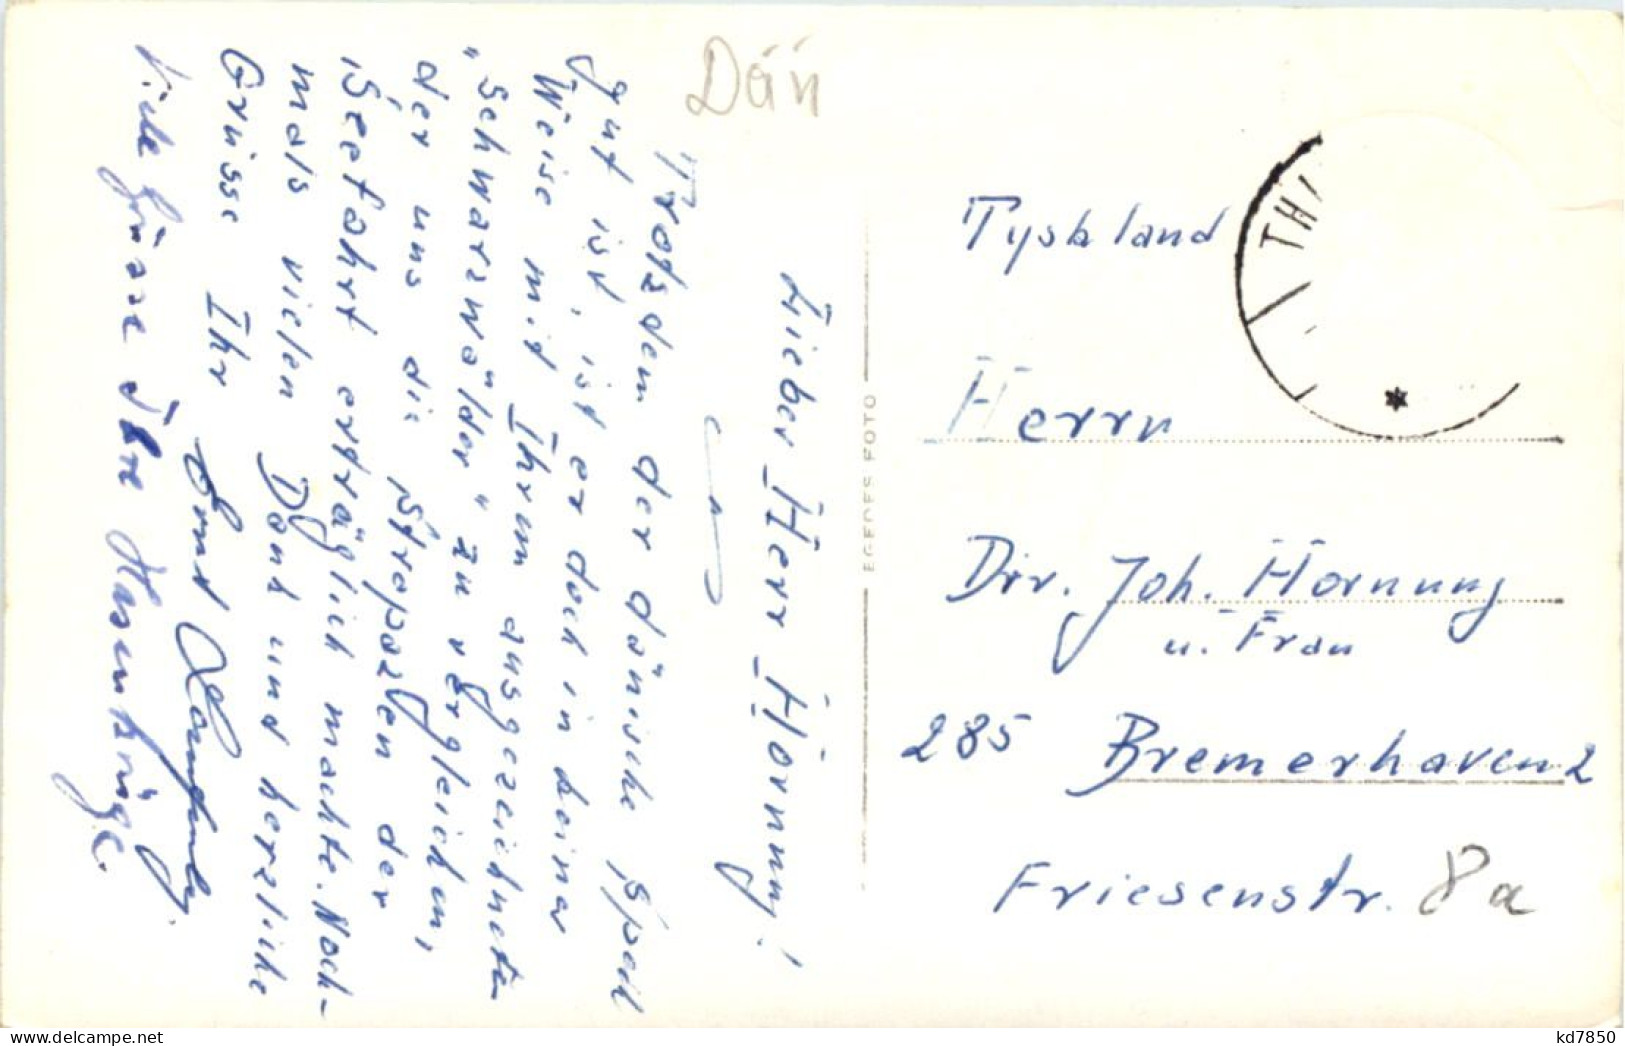 Dän
Lieber Herr Hornung!
Trotzdem der dänische Speil
gut ist, ist er doch in keiner
Weise mit Ihrem ausgezeichneten
"Schwarzwälder" zu vergleichen,
der uns die Strapazen der
Seefahrt erträglich machte. Noch-
mals vielen Dank und herzliche
Grüsse Ihr
Viele Grüsse Ihre
EGEDES FOTO
TH
Tyskland
Herrn
Dir. Joh. Hornung
u. Frau
285 Bremerhaven 2
Friesenstr. 8a
kd7850